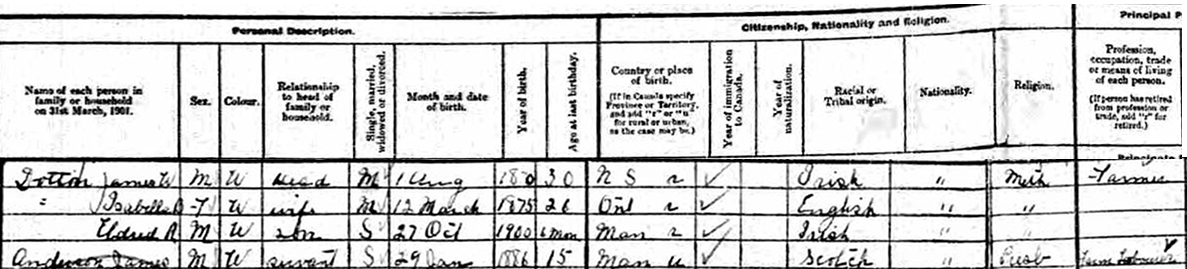 Personal Description. Citizenship, Nationality and Religion. Principal P
Name of each person in family or household on 31st March, 1901. Sex. Colour. Relationship to head of family or household. Single, married, widowed or divorced. Month and date of birth. Year of birth. Age at last birthday. Country or place of birth. (If in Canada specify Province or Territory, and add "r" or "u" for rural or urban, as the case may be.) Year of immigration to Canada. Year of naturalization. Racial or Tribal origin. Nationality. Religion. Profession, occupation, trade or means of living of each person. (If person has retired from profession or trade, add "r" for retired.)
Dotton James W M W Head M 1 Aug 30 N S r ✓ Irish " Meth Farmer
" Isabella F W wife M 12 March 1875 26 Ont r ✓ English " "
Eldred R M W son S 27 Oct 1900 Man r ✓ Irish " "
Anderson James M W servant S 29 Jan 1886 15 Man u ✓ Scotch " Presb Farm Labourer